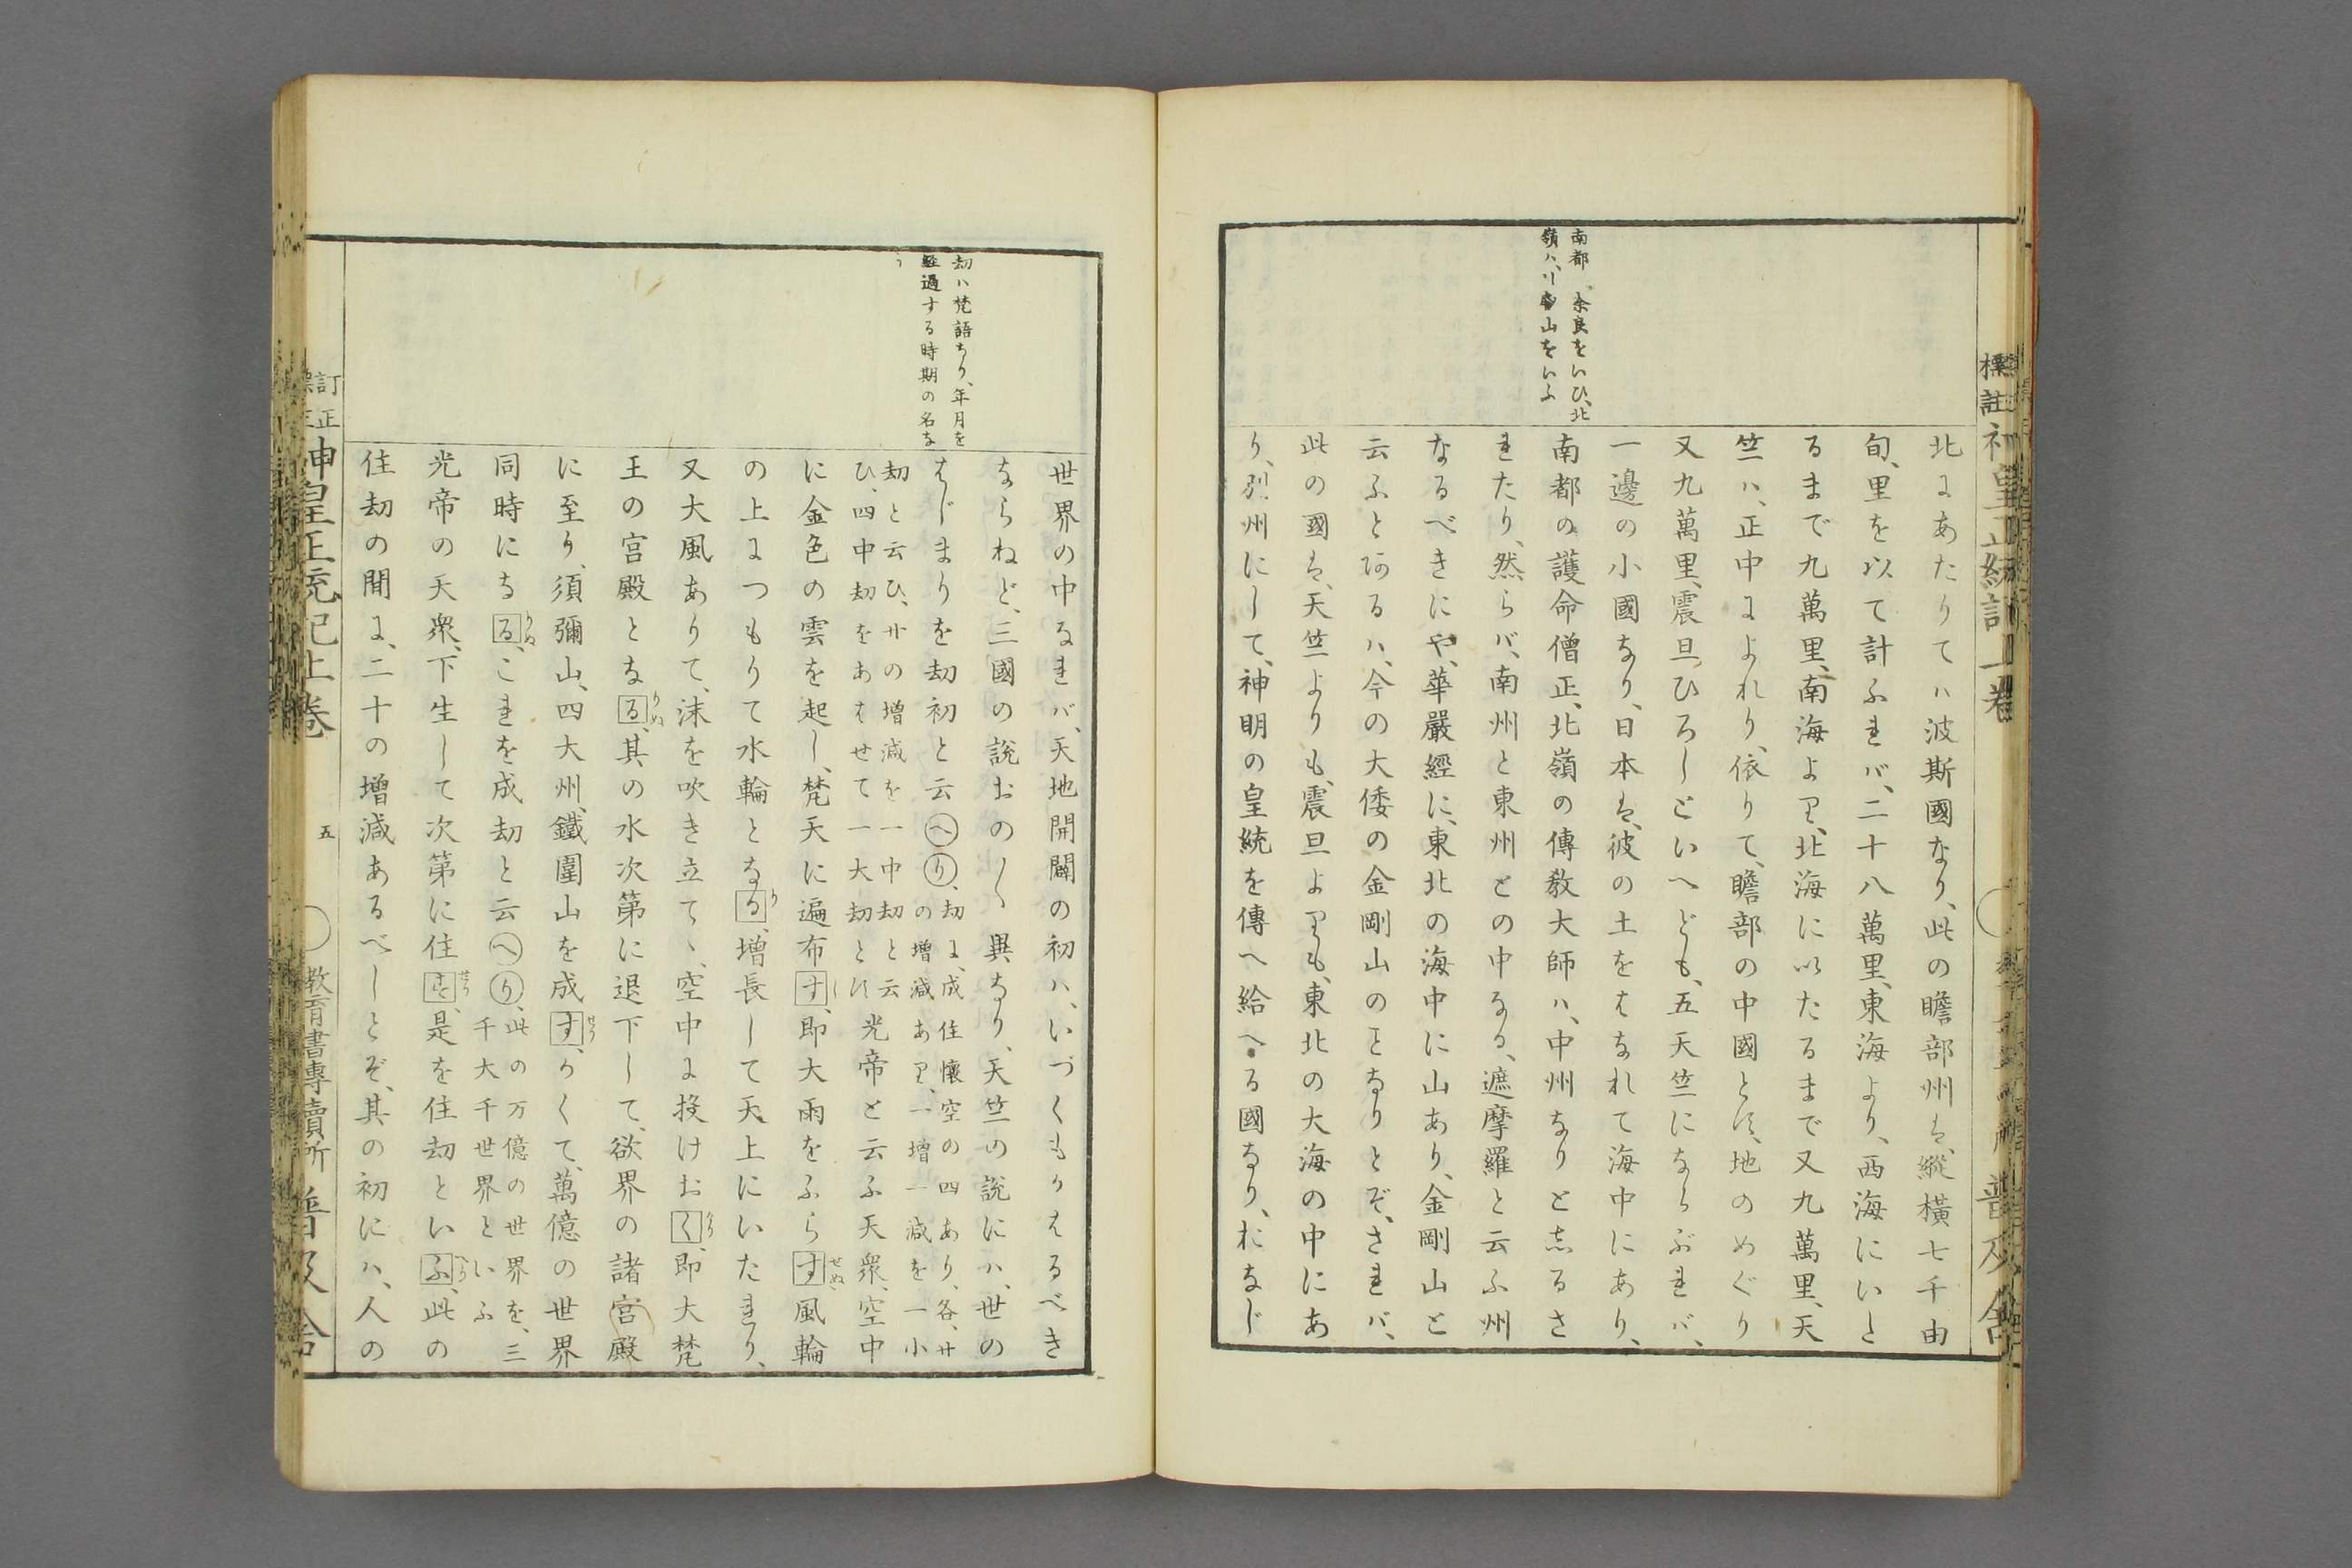 標註
神皇正統記上卷
普及舍
南都ハ奈良をいひ、北
嶺ハ、比叡山をいふ
北にあたりてハ波斯國なり、此の瞻部州は、縱橫七千由
旬、里を以て計ふれバ、二十八萬里、東海より、西海にいた
るまで九萬里、南海より、北海にいたるまで又九萬里、天
竺ハ、正中によれり、依りて、瞻部の中國とす、地のめぐり
又九萬里、震旦ひろしといへども、五天竺にならぶれバ、
一邊の小國なり、日本は、彼の土をはなれて海中にあり、
南都の護命僧正、北嶺の傳教大師ハ、中州なりと志るさ
れたり、然らバ、南州と東州との中なる、遮摩羅と云ふ州
なるべきにや、華嚴經に、東北の海中に山あり、金剛山と
云ふと阿るハ、今の大倭の金剛山のことなりとぞ、されバ、
此の國は、天竺よりも、震旦よりも、東北の大海の中にあ
り、別州にして、神明の皇統を傳へ給へる國なり、おなじ
劫ハ梵語なり、年月を
經過する時期の名な
り
世界の中なれバ、天地開闢の初ハ、いづくもかはるべき
ならねど、三國の說おの〳〵異なり、天竺の說にハ、世の
はじまりを劫初と云へり、劫に、成住懷空の四あり、各、廿
の增減あり、一增一減を一小
劫と云ひ、廿の增減を一中劫と云
ひ、四中劫をあはせて一大劫といふ光帝と云ふ天衆、空中
に金色の雲を起し、梵天に遍布すし、即大雨をふらすせぬ風輪
の上につもりて水輪となるり、增長して天上にいたれり、
又大風ありて、沫を吹き立てゝ、空中に投けおくかう、即大梵
王の宮殿となるりぬ、其の水次第に退下して、欲界の諸宮殿
に至り、須彌山、四大州、鐵圍山を成すせう、かくて、萬億の世界
同時になるりぬ、これを成劫と云へり、此の万億の世界を、三
千大千世界といふ
光帝の天衆、下生して次第に住すせう、是を住劫といふ、此の
住劫の間に、二十の增減あるべしとぞ、其の初にハ、人の
訂正
神皇正統記上卷
五
教育書專賣所
普及舍